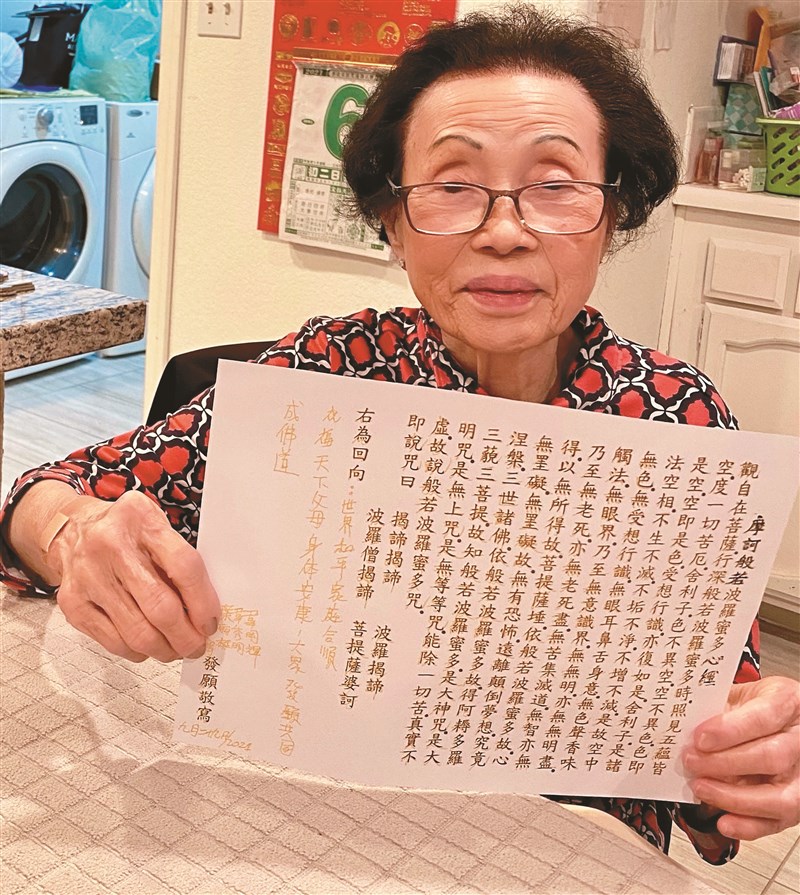 6
初二日
摩訶般若波羅蜜多心經
觀自在菩薩行深般若波羅蜜多時照見五蘊皆
空度一切苦厄舍利子色不異空空不異色色即
是空空即是色受想行識亦復如是舍利子是諸
法空相不生不滅不垢不淨不增不減是故空中
無色無受想行識無眼耳鼻舌身意無色聲香味
觸法無眼界乃至無意識界無無明亦無無明盡
乃至無老死亦無老死盡無苦集滅道無智亦無
得以無所得故菩提薩埵依般若波羅蜜多故心
無罣礙無罣礙故無有恐怖遠離顛倒夢想究竟
涅槃三世諸佛依般若波羅蜜多故得阿耨多羅
三藐三菩提故知般若波羅蜜多是大神咒是大
明咒是無上咒是無等等咒能除一切苦真實不
虛故說般若波羅蜜多咒
即說咒曰
揭諦揭諦 波羅揭諦
波羅僧揭諦 菩提薩婆訶
右為回向：世界和平家庭合順
天下父母身体安康！大眾發願共同
成佛道
發願敬寫